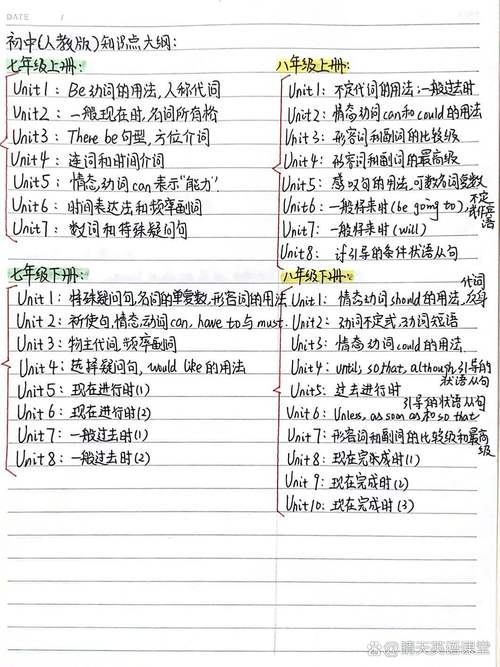 DATE /
初中(人教版)知识点大纲:
七年级上册:
Unit1: Be动词的用法,人称代词
Unit2: 一般现在时,名词所有格
Unit3: There be句型,方位介词
Unit4: 连词和时间介词
Unit5: 情态动词can表示"能力"
Unit6: 时间表达法和频率副词
Unit7: 数词和特殊疑问句
七年级下册:
Unit1: 特殊疑问句,名词的单复数,形容词的用法
Unit2: 祈使句,情态动词can, have to与must.
Unit3: 物主代词,频率副词
Unit4: 选择疑问句, would like的用法
Unit5: 现在进行时(1)
Unit6: 现在进行时(2)
Unit7: 一般过去时(1)
Unit8: 一般过去时(2)
八年级上册:
Unit1: 不定代词的用法;一般过去时
Unit2: 情态动词can和could的用法
Unit3: 形容词和副词的比较级
Unit4: 形容词和副词的最高级
Unit5: 感叹句的用法,可数名词复数
Unit6: 一般将来时(be going to),不定
式作宾语
Unit7: 一般将来时(will)
Unit8: if引导的条件状语从句
八年级下册:
Unit1: 情态动词should的用法,反身
代词
Unit2: 动词不定式,动词短语
Unit3: 情态动词could的用法.
Unit4: until, so that, although引导的
状语从句
Unit5: 过去进行时
Unit6: Unless, as soon as和so that
引导的状语从句
Unit7: 形容词和副词的比较级和最高
级
Unit8: 现在完成时(1)
Unit9: 现在完成时(2)
Unit10: 现在完成时(3)
晴天英语课堂